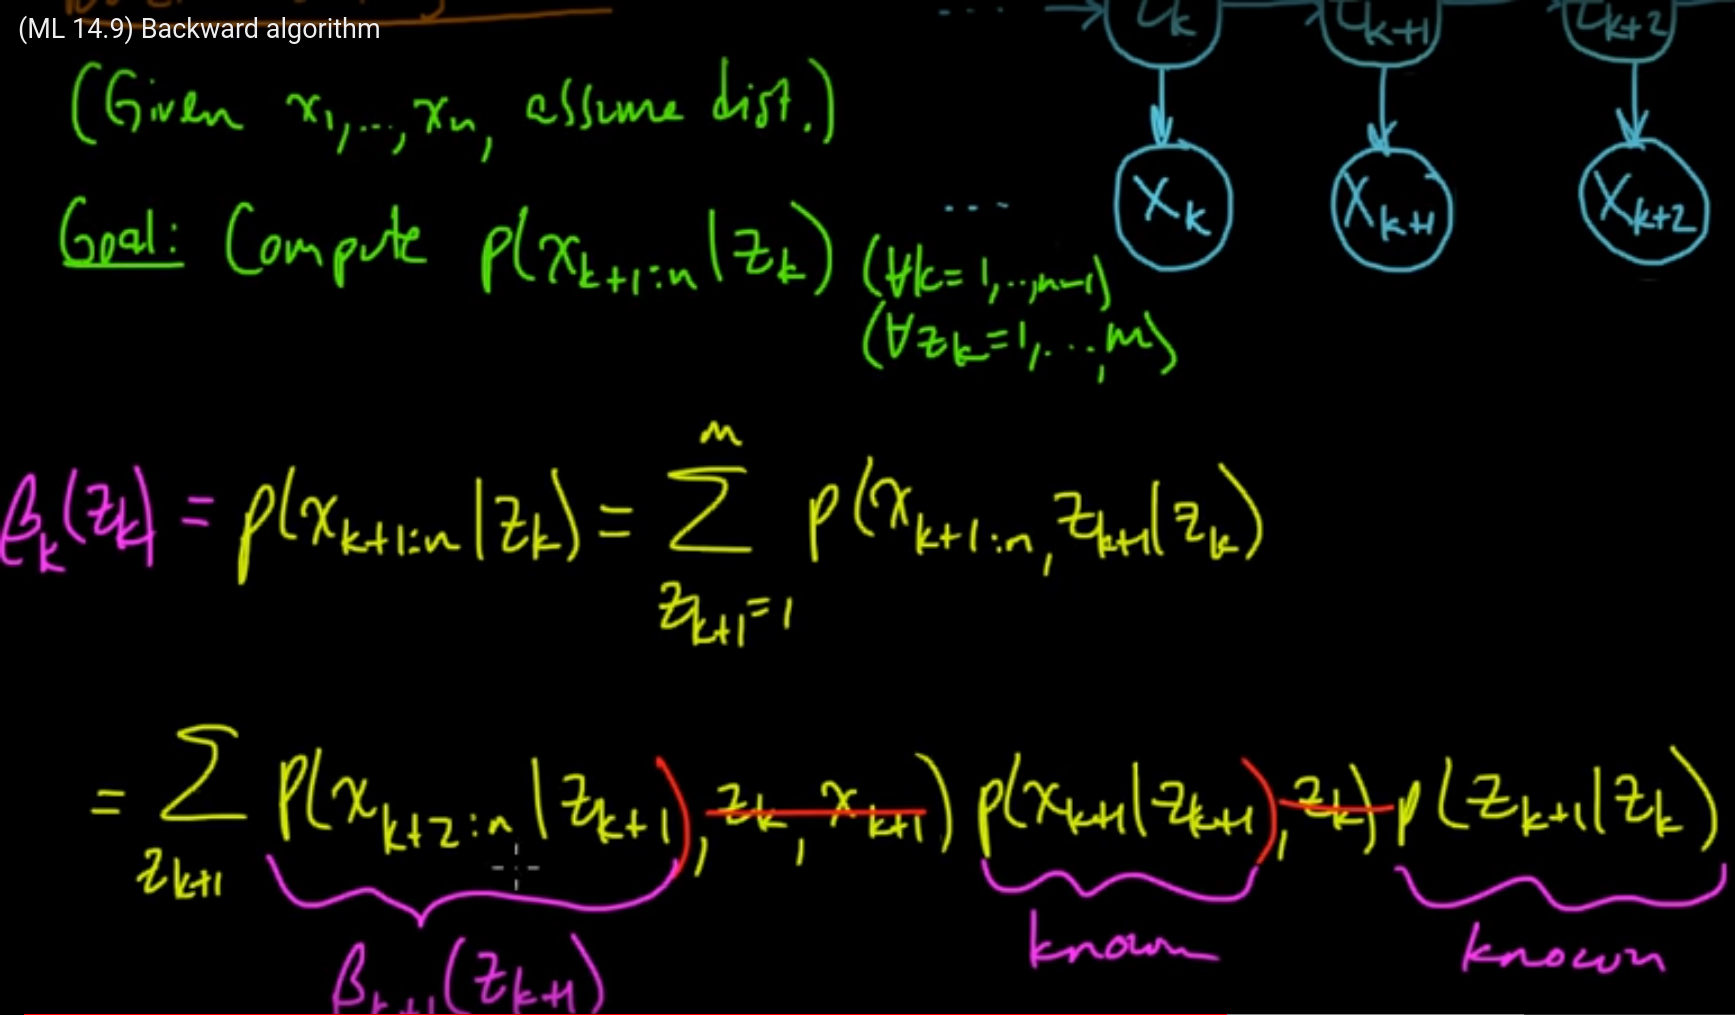 (ML 14.9) Backward algorithm
(Given x₁,...,xₙ, assume dist.)
Goal: Compute p(x_{k+1:n} | z_k) (∀k=1,..,n-1)
(∀z_k=1,...,m)
... z_k z_{k+1} z_{k+2}
... X_k X_{k+1} X_{k+2}
β_k(z_k) = p(x_{k+1:n} | z_k) = ∑_{z_{k+1}=1}^{m} p(x_{k+1:n}, z_{k+1} | z_k)
= ∑_{z_{k+1}} p(x_{k+2:n} | z_{k+1}), z_k, x_{k+1}) p(x_{k+1} | z_{k+1}), z_k) p(z_{k+1} | z_k)
β_{k+1}(z_{k+1}) known known